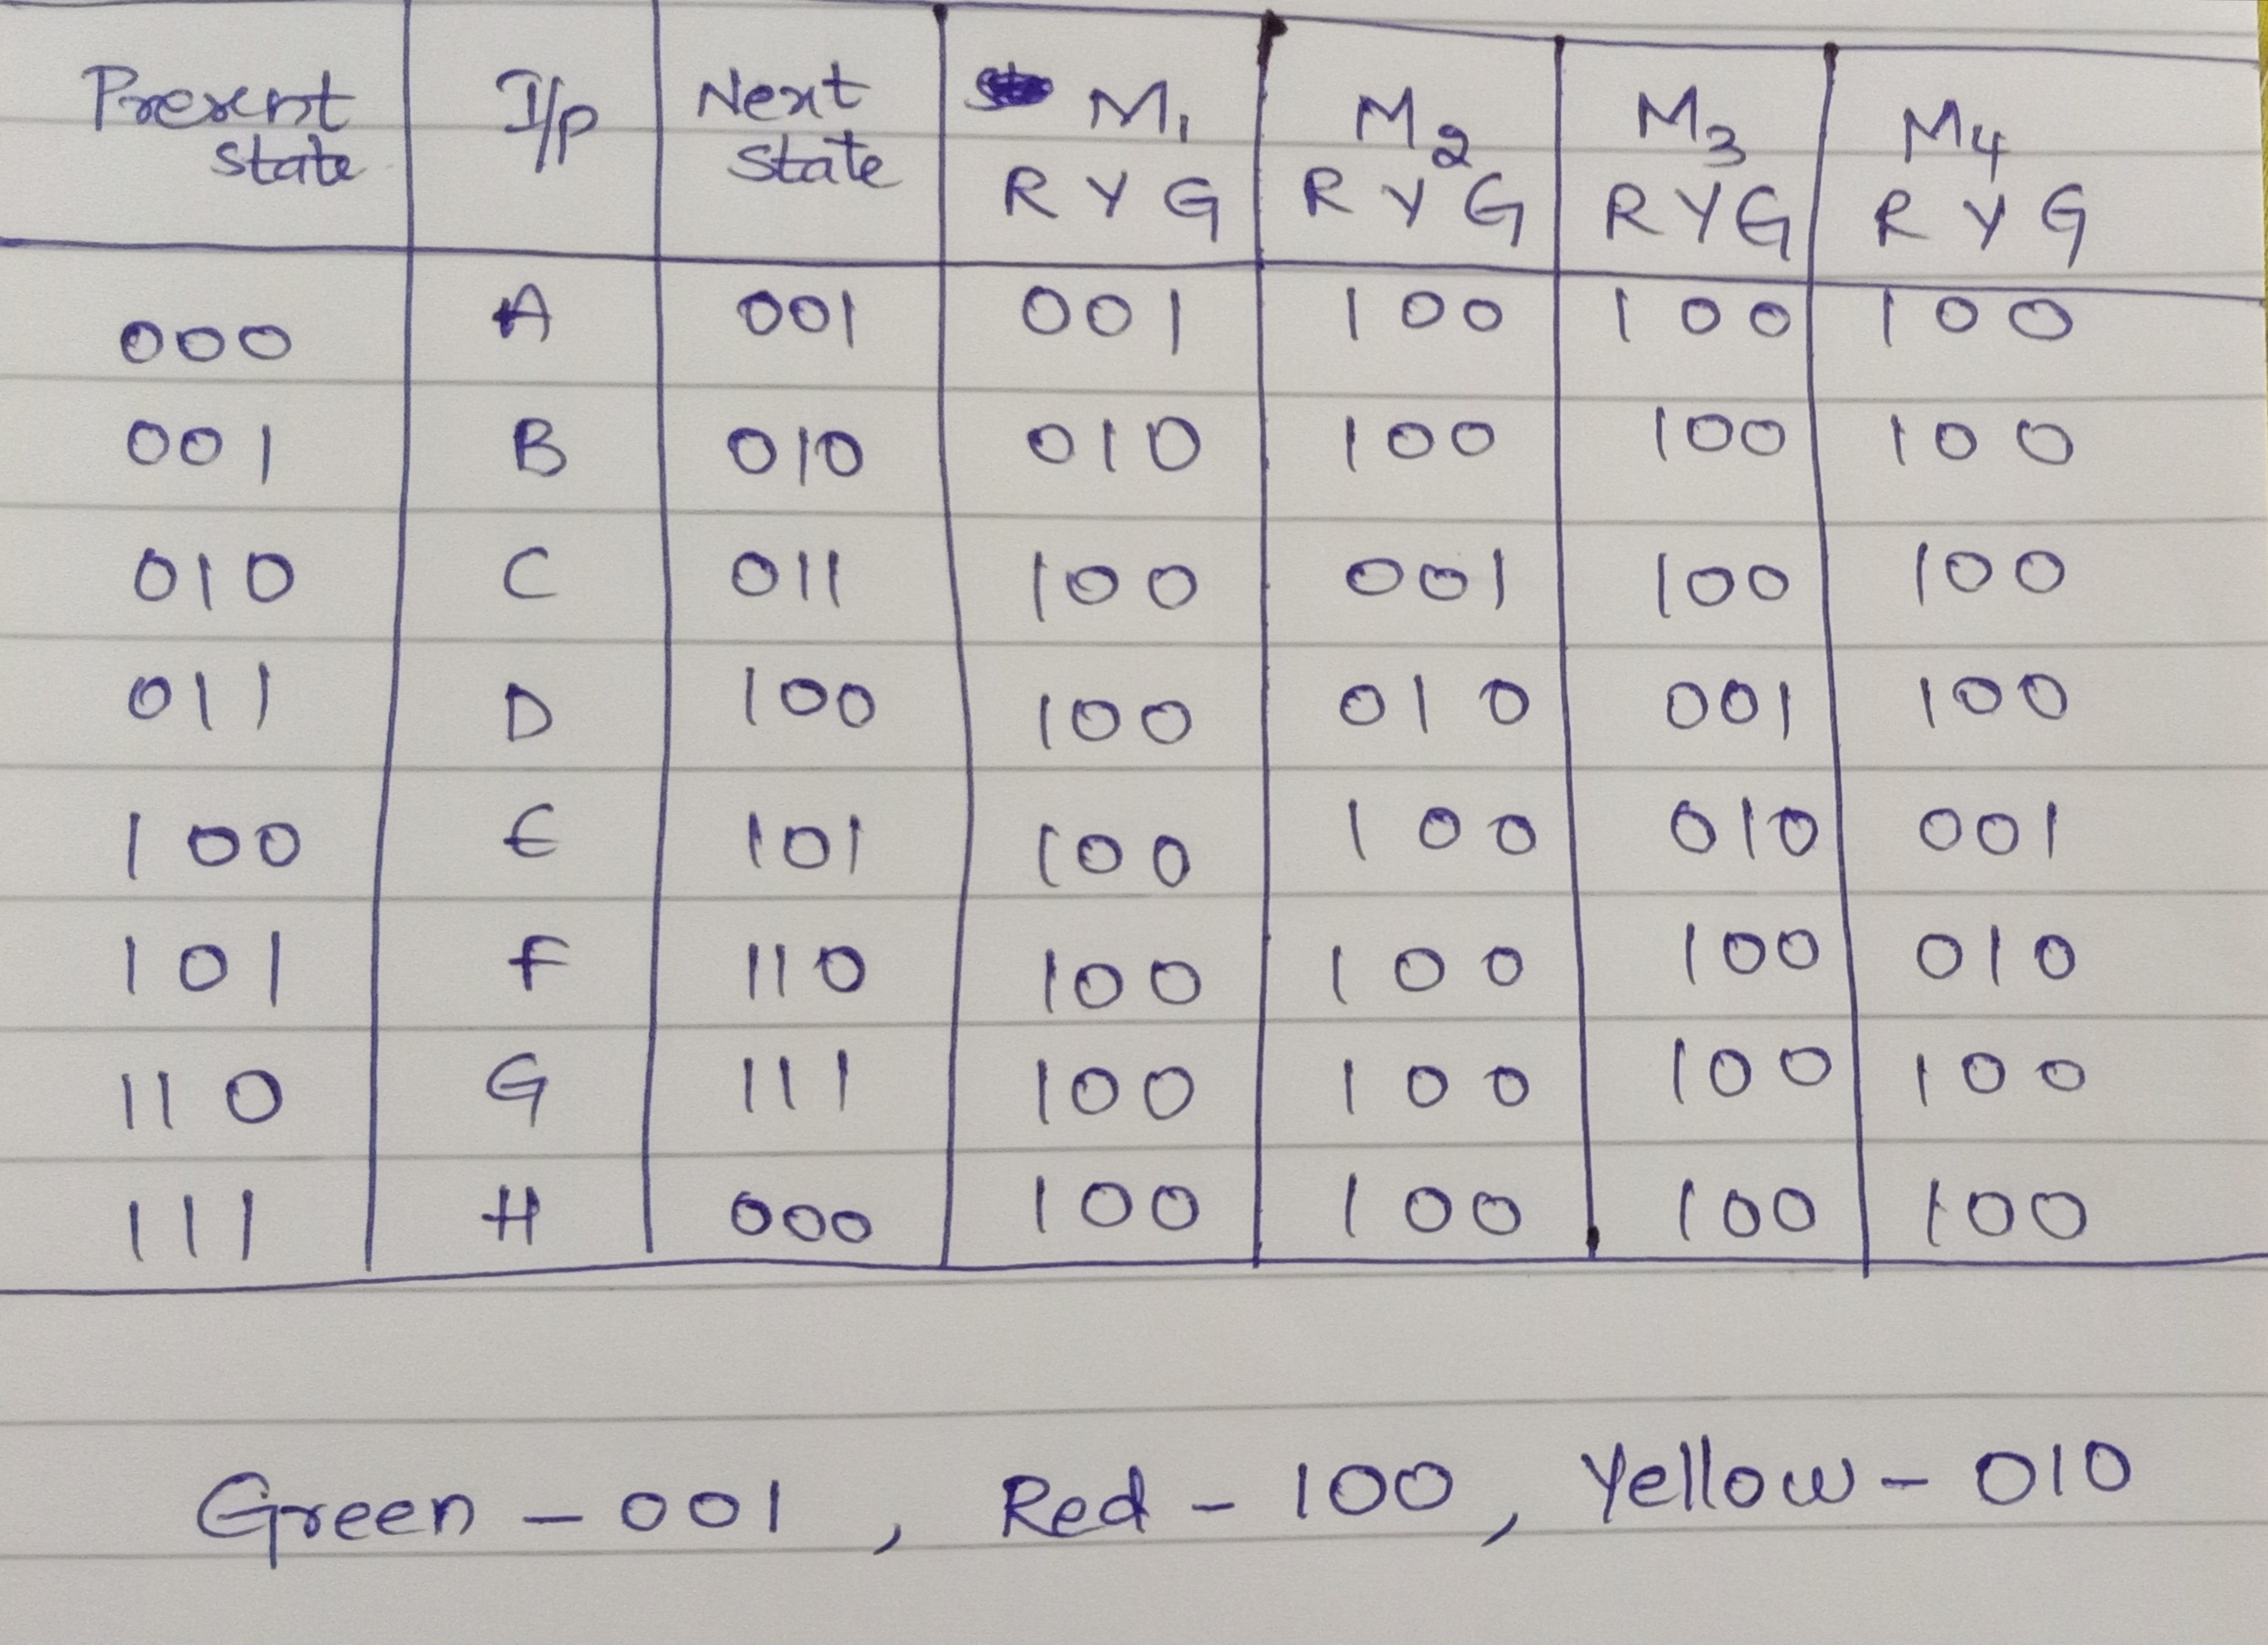 Present state I/p Next state M1 M2 M3 M4
R Y G R Y G R Y G R Y G
000 A 001 001 100 100 100
001 B 010 010 100 100 100
010 C 011 100 001 100 100
011 D 100 100 010 001 100
100 E 101 100 100 010 001
101 F 110 100 100 100 010
110 G 111 100 100 100 100
111 H 000 100 100 100 100
Green - 001 , Red - 100 , Yellow - 010